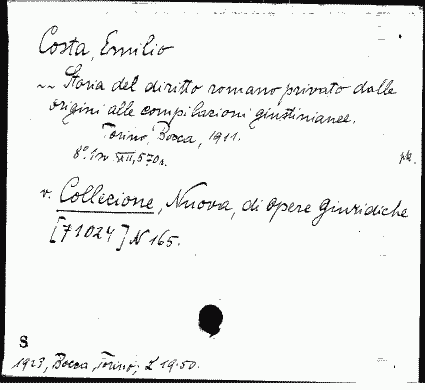 Costa, Emilio
~~ Storia del diritto romano privato dalle
origini alle compilazioni giustinianee.
Torino, Bocca, 1911.
8º. XVII, 570 s.
v. Collezione, Nuova, di opere giuridiche
[71024] N 165.
8
1923, Bocca, Torino, L 19.50.